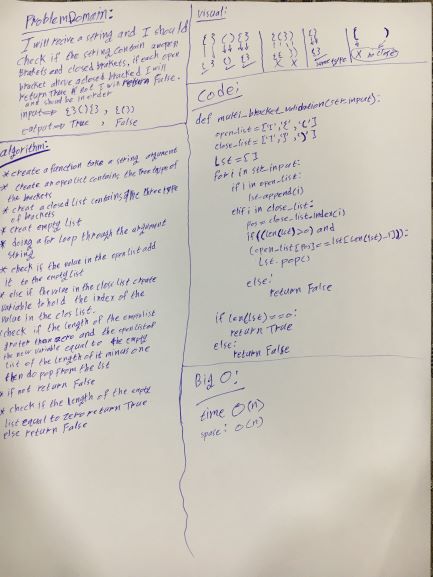 Problem Domain:
I will recive a string and I should
check if the string contain an open
Brakets and closed brakets, if each open
bracket ahave a closed blacked I will
return True if not I will return False.
and should be in order
input => {}(){} , {()}
output => True , False
algorithm:
* create a function take a string argument
* create an open list contains the tree types of
the brackets
* creat a closed list contains the three types
of brackets
* creat empty List
* doing a for loop through the argument
string
* check is the value in the open list add
it to the empty list
* else if the value in the close list create
variable to hold the index of the
value in the clos list.
check if the length of the
grater than zero and the open list of
the new variable equal to the empty
list of the length of it minus one
then do pop from the lst
* if not return False
* check if the length of the empty
list equal to zero return True
else return False
visual:
{ } ( ) { }
same type
X no close
Code:
def multi_bracket_validation(str_input):
open_list = ['[', '{', '(']
close_list = [']', '}', ')']
Lst = []
for i in str_input:
if i in open_list:
lst.append(i)
elif i in close_list:
pos = close_list.index(i)
if ((len(lst) > 0) and
(open_list[pos] == lst[len(lst)-1])):
Lst.pop()
else:
return False
if len(lst) == 0:
return True
else:
return False
Big O:
time O(n)
space: O(n)